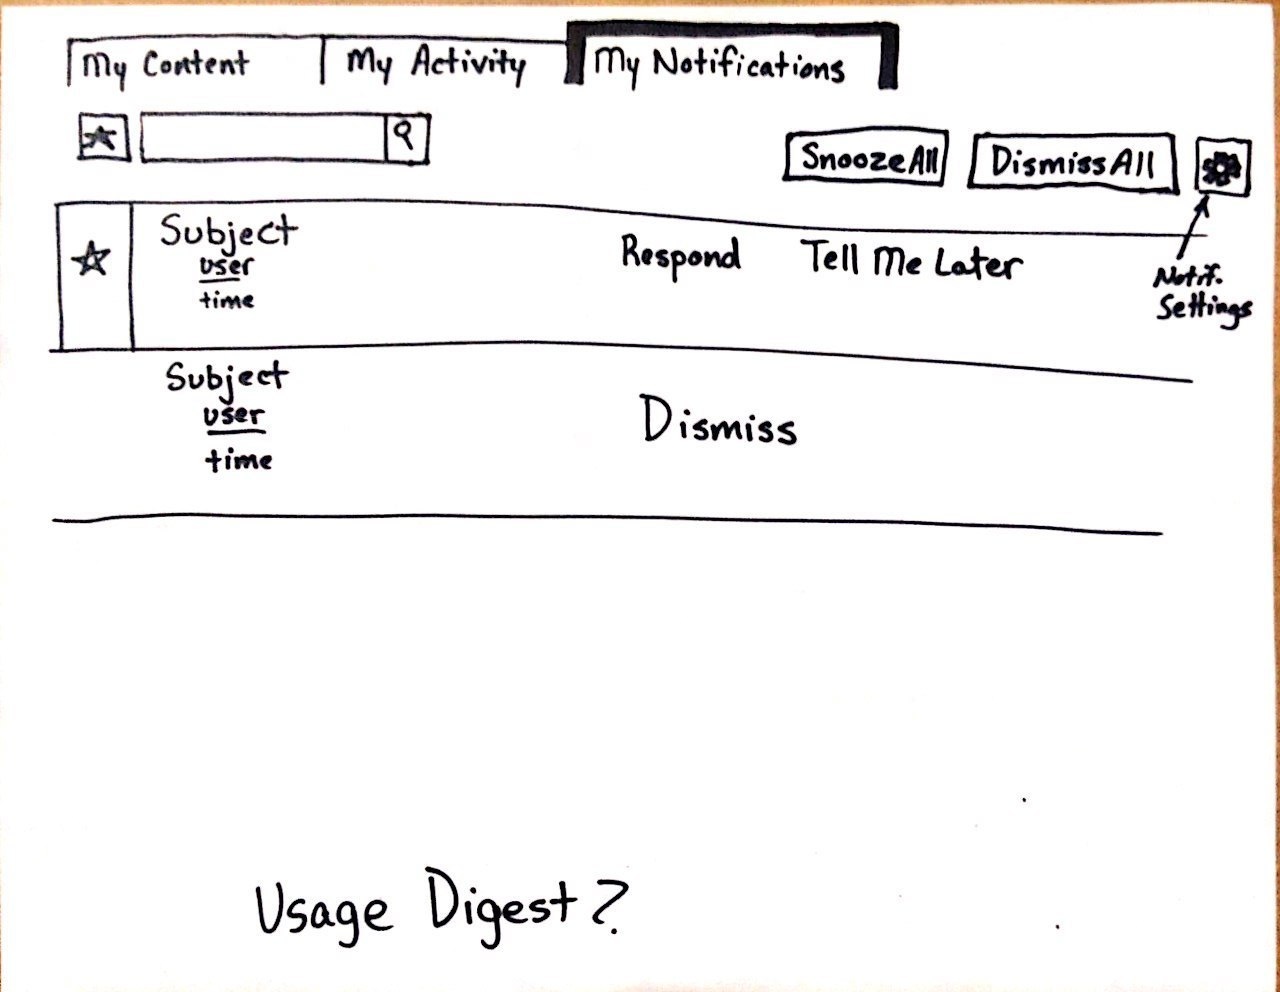 My Content My Activity My Notifications
Snooze All Dismiss All
Subject Respond Tell Me Later
user
time
Notif.
Settings
Subject
user
time
Dismiss
Usage Digest?